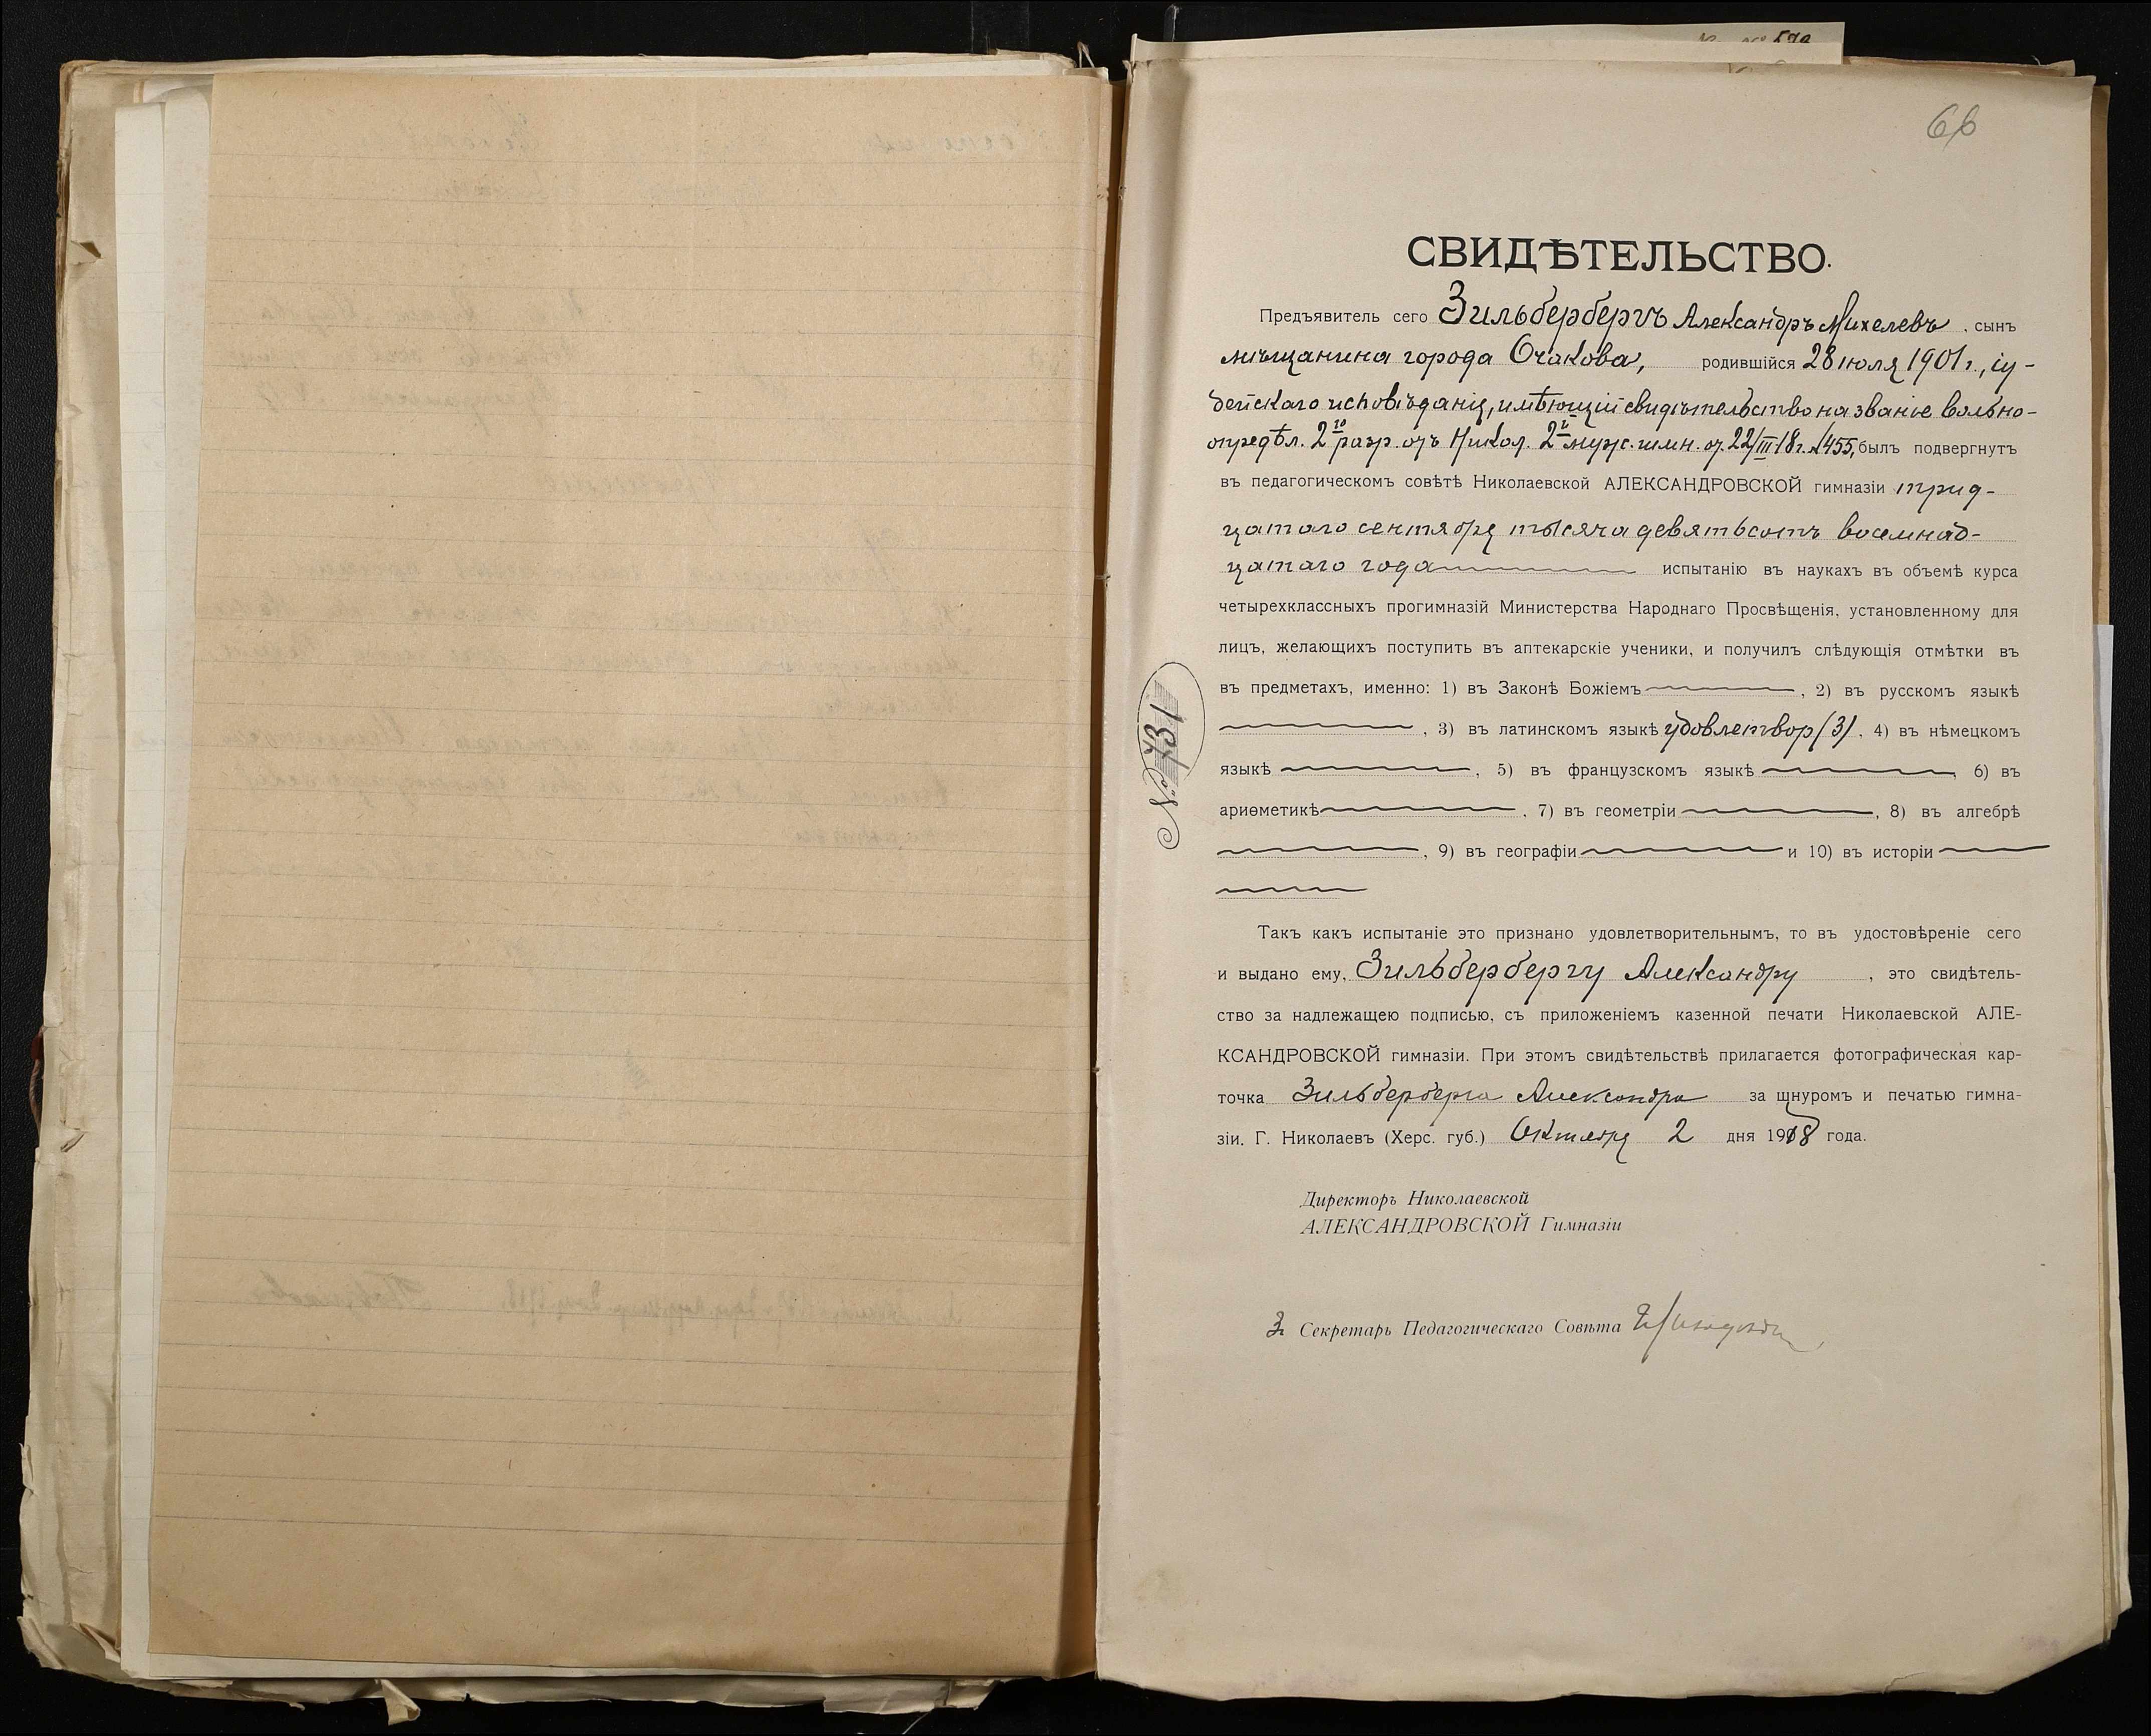 66
СВИДѢТЕЛЬСТВО.
Предъявитель сего Зильбербергъ Александръ Михелевъ, сынъ
мѣщанина города Очакова, родившійся 28 іюля 1901 г., іу-
дейскаго исповѣданія, имѣющій свидѣтельство на званіе вольно-
опредѣл. 2го разр. отъ Никол. 2й муж. гимн. от 22/III 18 г. № 455, былъ подвергнутъ
въ педагогическомъ совѣтѣ Николаевской АЛЕКСАНДРОВСКОЙ гимназіи трид-
цатаго сентября тысяча девятьсотъ восемнад-
цатаго года испытанію въ наукахъ въ объемѣ курса
четырехклассныхъ прогимназій Министерства Народнаго Просвѣщенія, установленному для
лицъ, желающихъ поступить въ аптекарскіе ученики, и получилъ слѣдующія отмѣтки въ
въ предметахъ, именно: 1) въ Законѣ Божіемъ , 2) въ русскомъ языкѣ
, 3) въ латинскомъ языкѣ удовлетвор (3), 4) въ нѣмецкомъ
языкѣ , 5) въ французскомъ языкѣ , 6) въ
ариѳметикѣ , 7) въ геометріи , 8) въ алгебрѣ
, 9) въ географіи и 10) въ исторіи
№ 731
Такъ какъ испытаніе это признано удовлетворительнымъ, то въ удостовѣреніе сего
и выдано ему, Зильбербергу Александру , это свидѣтель-
ство за надлежащею подписью, съ приложеніемъ казенной печати Николаевской АЛЕ-
КСАНДРОВСКОЙ гимназіи. При этомъ свидѣтельствѣ прилагается фотографическая кар-
точка Зильберберга Александра за шнуромъ и печатью гимна-
зіи. Г. Николаевъ (Херс. губ.) Октября 2 дня 1918 года.
Директоръ Николаевской
АЛЕКСАНДРОВСКОЙ Гимназіи
За Секретарь Педагогическаго Совѣта